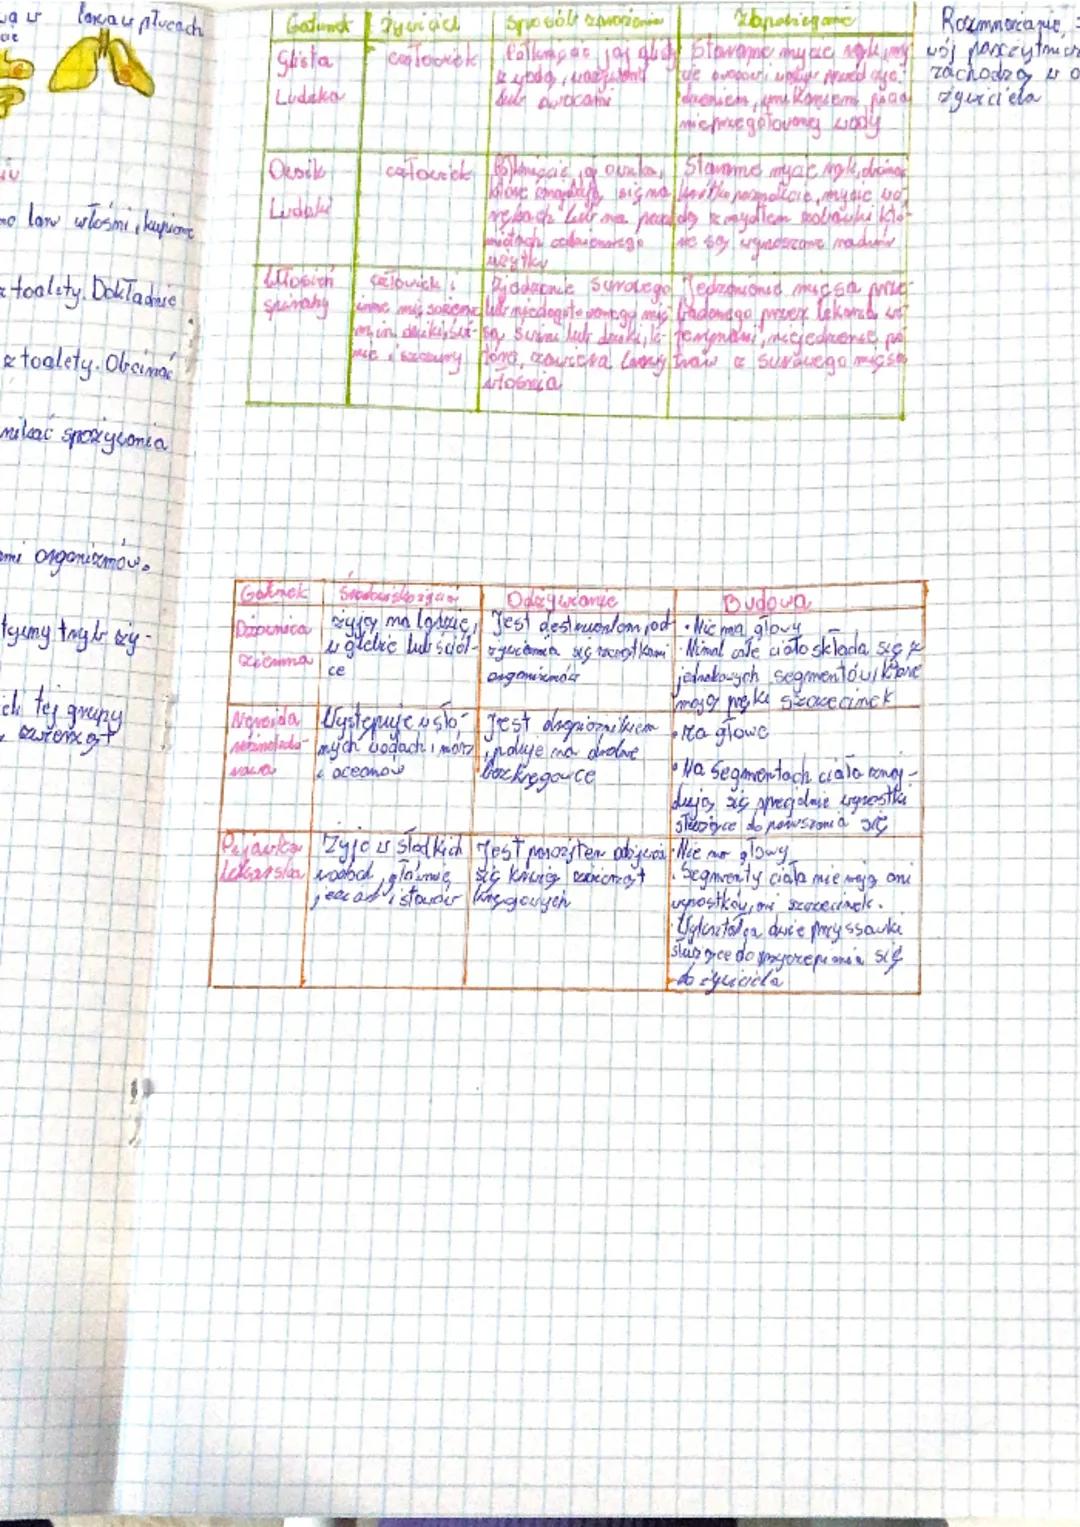 larwa w płucach
no larw włośni, kupione
z toalety. Dokładnie
z toalety. Obcinać
nikać spożywania
organizmów.
tej grupy
zwierząt
Gatunek Żywiciel Sposób zarażenia Zapobieganie
Glista
Ludzka
człowiek
Połknięcie jaj glisty
z wodą, warzywami
lub owocami
Staranne mycie rąk, my
cie owoców i warzyw przed
unikaniem
nieprzegotowanej wody
Owsik
Ludzki
człowiek
Połknięcie jaj owsika,
które znajdują się na
rękach lub na przed
miotach codziennego
użytku
Staranne mycie rąk,
krótko paznokcie, mycie wo
dą z mydłem
Włosień
spiralny
człowiek i
inne mięsożerne
m.in. dziki, świ-
nie i szczury
Zjedzenie surowego
lub niedogotowanego mię
sa, świni lub dzika, k-
tóra zawiera larwy
włośnia
Jedzenie mięsa prze
badanego przez lekarza we
terynarii, niejedzenie po
traw z surowego mięsa
Rozmnażanie,
wój pasożytnicz
zachodzą w o
żywiciela
Gatunek Środowisko życia Odżywianie Budowa
Dżdżownica
ziemna
żyją na lądzie,
w glebie lub ściół-
ce
Jest destruentem, od
żywienia się resztkami
organizmów
• Nie ma głowy
• Niemal całe ciało składa się z
jednakowych segmentów, które
mają pęki szczecinek
Nereida
różnokolo-
rowa
Występuje w sło-
nych wodach i mórz
i oceanów
Jest drapieżnikiem
, poluje na drobne
bezkręgowce
• Ma głowę
• Na segmentach ciała znaj-
dują się specjalne wyrostki
służące do poruszania się
Pijawka
lekarska
Żyje w słodkich
wodach, głównie
jezior i stawów
Jest pasożytem odżywia
się krwią zwierząt
kręgowych
• Nie ma głowy
• Segmenty ciała nie mają ani
wyrostków, ani szczecinek.
• Wykształca dwie przyssawki
służące do przyczepiania się
do żywiciela